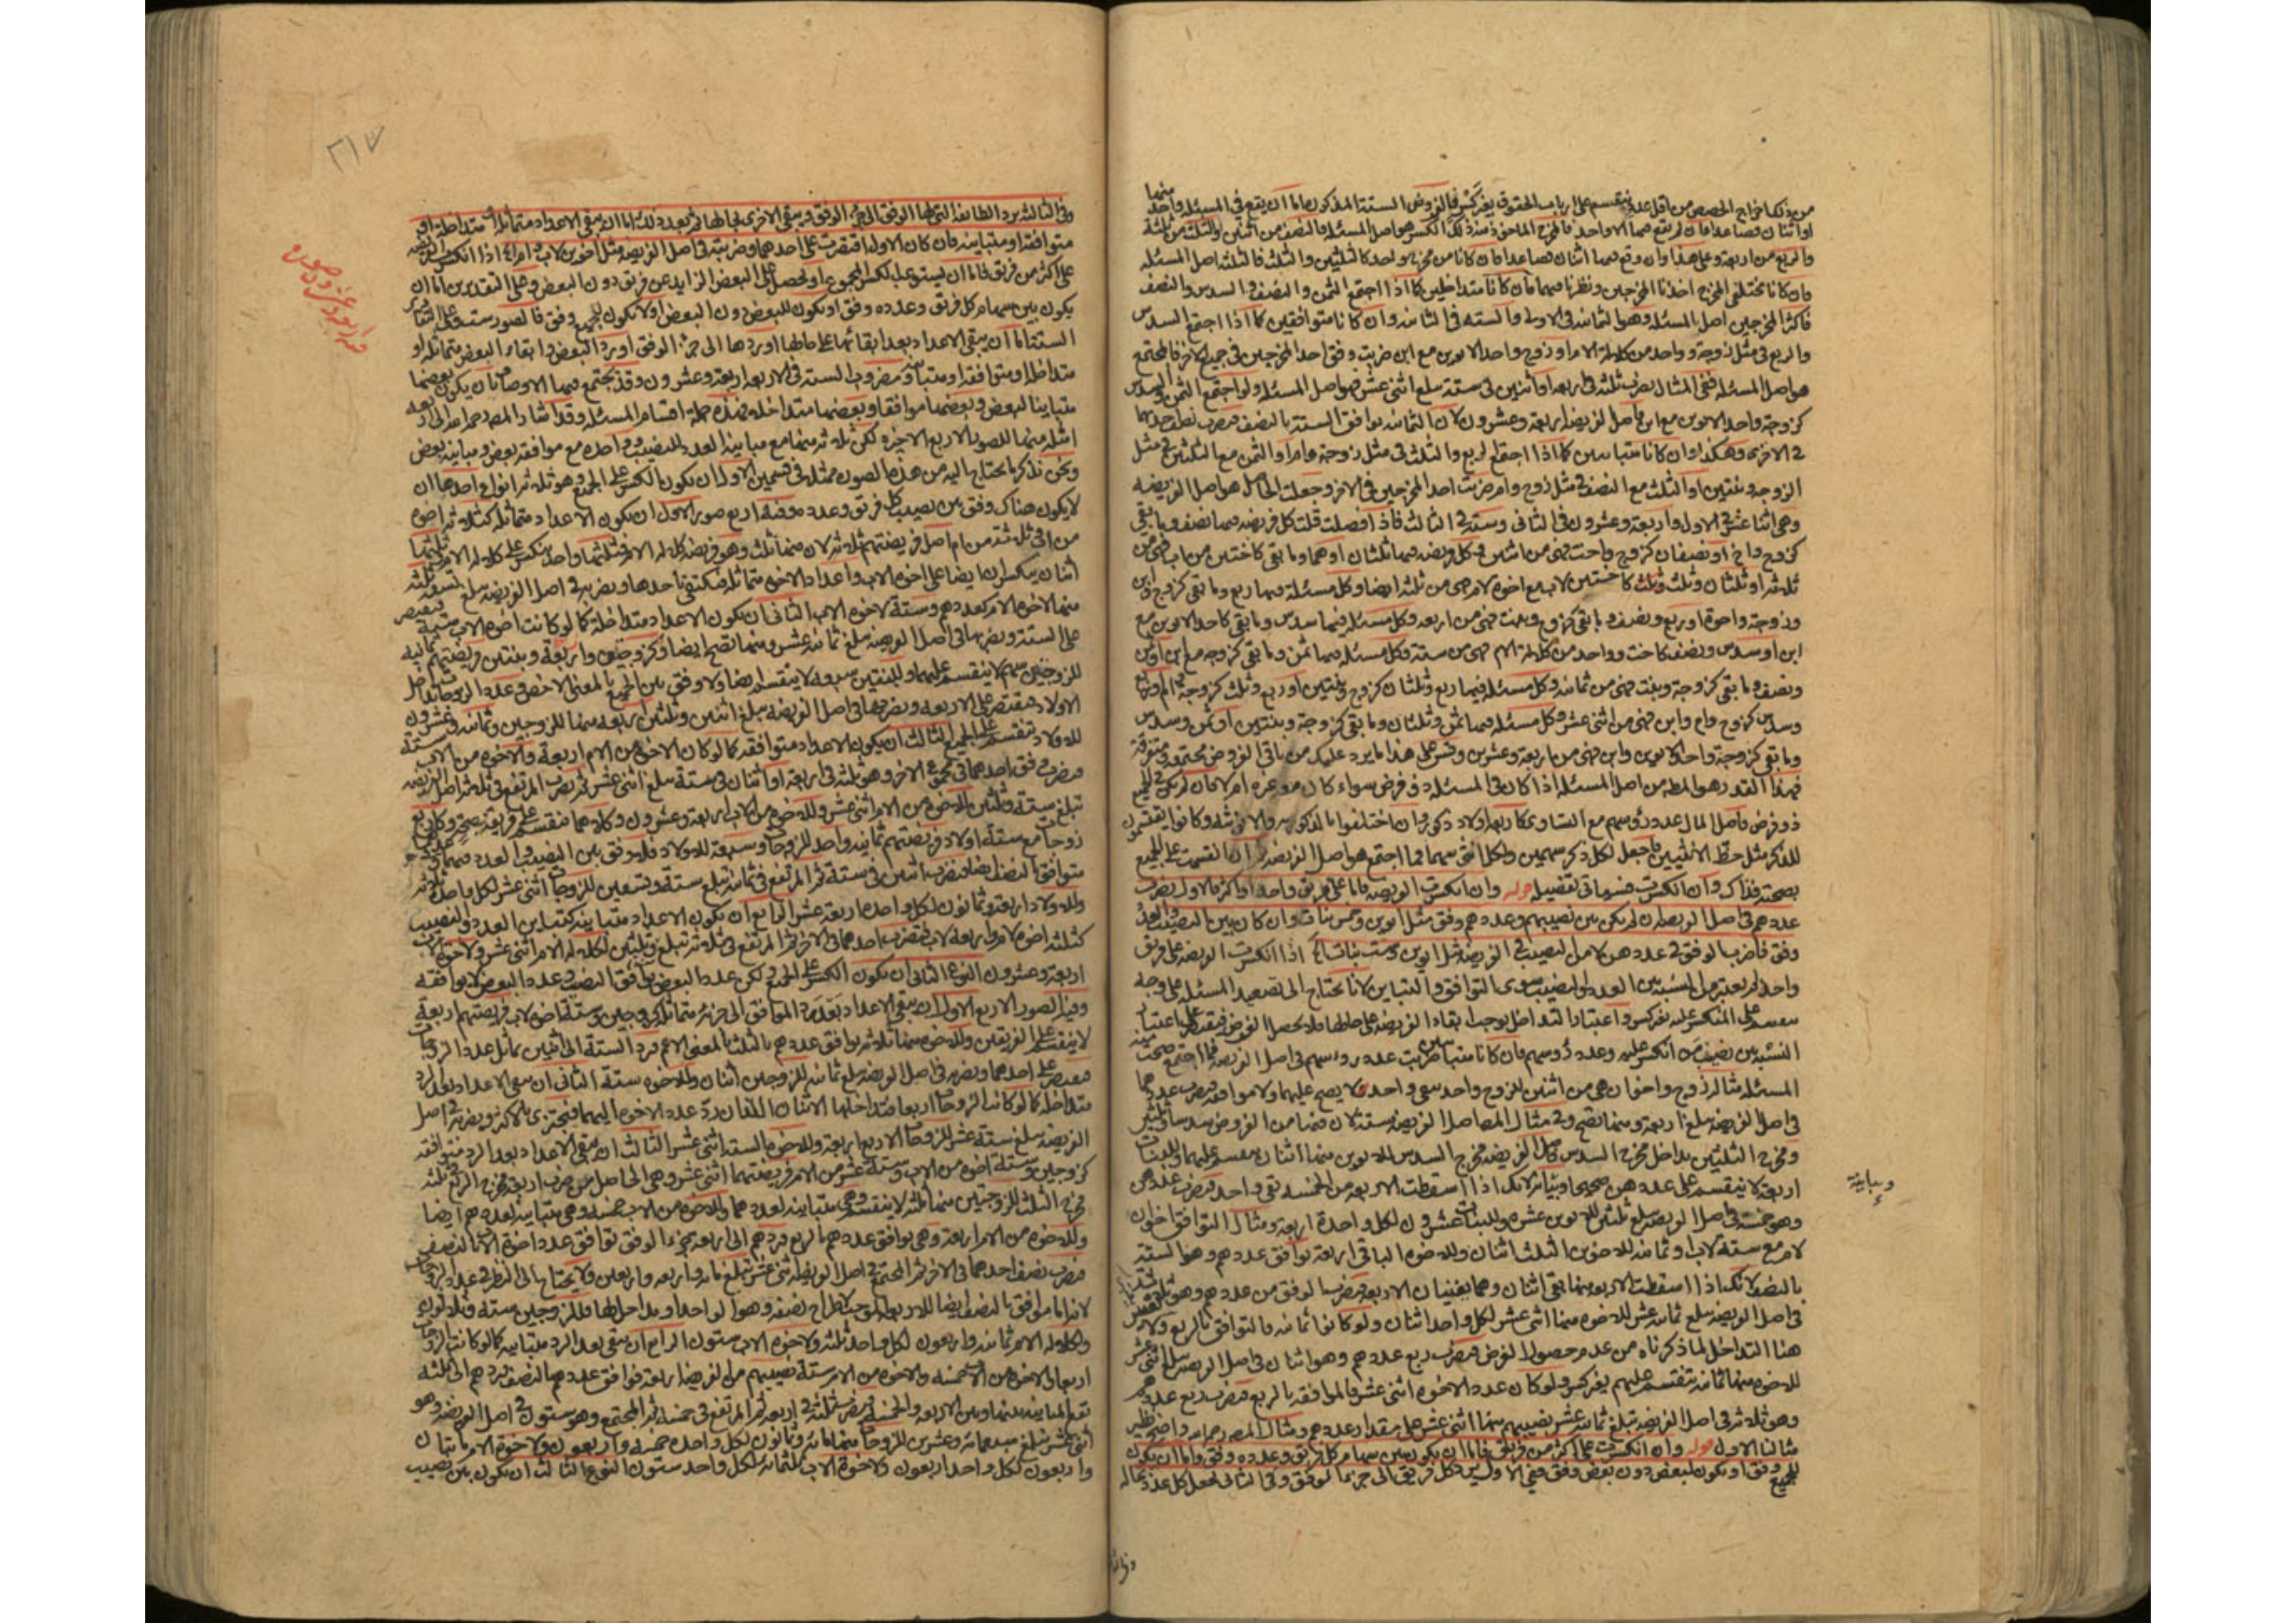 من ذلك اخراج الحصص من اقل عدد ينقسم على ارباب الحقوق بغير كسر فالفروض الستة المذكورة اما ان يقع في المسئله واحد منها
او اثنان فصاعدا فان لم يقع فيها الا واحد فالمخرج الماخوذ منه ذلك الكسر هو اصل المسئله فالنصف من اثنين والثلث من ثلثة
والربع من اربعة وعلى هذا وان وقع فيها اثنان فصاعدا فان كانا من مخرج واحد كالثلثين والثلث فالثلثه اصل المسئله
فان كانا مختلفي المخرج اخذنا المخرجين ونظرنا فيهما فان كانا متداخلين كما اذا اجتمع الثمن والنصف او السدس والنصف
فاكثر المخرجين اصل المسئله وهو الثمانيه في الاولى والسته في الثانيه وان كانا متوافقين كما اذا اجتمع السدس
والربع في مثل زوجة وواحد من كلالة الام او زوج واحد الابوين مع ابن ضربت وفق احد المخرجين في جميع الاخر فالمجتمع
هو اصل المسئله ففي المثال يضرب ثلثه في اربعه او اثنين في ستة تبلغ اثنى عشر فهو اصل المسئله ولو اجتمع الثمن والسدس
كزوجة واحد الابوين مع ابن فاصل الفريضه اربعة وعشرون لان الثمانيه توافق الستة بالنصف فيضرب نصف احدهما
في الاخرى وهكذا وان كانا متباينين كما اذا اجتمع الربع والثلث في مثل زوجة وام او الثمن مع الثلثين في مثل
الزوجه وبنتين او الثلث مع النصف في مثل زوج وام ضربت احد المخرجين في الاخر وجعلت الحاصل هو اصل الفريضه
وهي اثنا عشر في الاول واربعة وعشرون في الثاني وستة في الثالث فاذا فصلت قلت كل فريضه فيها نصف وما بقي
كزوج واخ او نصفان كزوج واخت فهي من اثنين وكل فريضه فيها ثلثان او هما وما بقي كاختين من اب فهي من
ثلثه او ثلثان وثلث كاختين لاب مع اخوة لام فهي من ثلثه ايضا وكل مسئله فيها ربع وما بقي كزوج وابن
وزوجة واخوة او ربع ونصف وما بقي كزوج وبنت فهي من اربعه وكل مسئله فيها سدس وما بقي كاحد الابوين مع
ابن او سدس ونصف كاخت وواحد من كلالة الام فهي من ستة وكل مسئله فيها ثمن وما بقي كزوجه مع ابن او ثمن
ونصف وما بقي كزوجة وبنت فهي من ثمانيه وكل مسئله فيها ربع وثلثان كزوج وبنتين او ربع وثلث كزوجة وام او ربع
وسدس كزوج وام وابن فهي من اثنى عشر وكل مسئله فيها ثمن وثلثان وما بقي كزوجة وبنتين او ثمن وسدس
وما بقي كزوجة واحد الابوين وابن فهي من اربعة وعشرين وقس على هذا ما يرد عليك من باقي الفروض مجتمعه ومتفرقة
فهذا القدر هو المطلب من اصل المسئله اذا كان في المسئله ذو فرض سواء كان مع غيره ام لا فان لم يكن في الجميع
ذو فرض فاصل المال عدد رؤسهم مع التساوي كاربعه اولاد ذكور وان اختلفوا بالذكوريه والانوثيه وكانوا يقتسمون
للذكر مثل حظ الانثيين فاجعل لكل ذكر سهمين ولكل انثى سهما فما اجتمع هو اصل الفريضه ثم ان انقسمت على الجميع
بصحته فذاك وان انكسرت فسياتي تفصيله قوله وان انكسرت الفريضه فاما على فريق واحد او اكثر فالاول يضرب
عددهم في اصل الفريضه ان لم يكن بين نصيبهم وعددهم وفق مثل ابوين وخمس بنات وان كان بين النصيب والعدد
وفق فاضرب الوفق من عددهن لا من النصيب في الفريضه مثل ابوين وست بنات اذا انكسرت الفريضه على فريق
واحد لم يعتبر من النسب بين العدد والنصيب سوى التوافق والتباين لانا نحتاج الى تصعيد المسئله على وجه
النسبه بين نصيب من انكسر عليه وعدد رؤسهم فان كانا متباينين ضربت عدد رؤسهم في اصل الفريضه فما اجتمع صحت منه
المسئله مثاله زوج واخوان هي من اثنين للزوج واحد يبقى واحد لا يصح عليهما ولا موافقه فيضرب عددهما
في اصل الفريضه تبلغ اربعة ومنها تصح وفي مثال المصاصل الفريضه ستة لان فيها من الفروض سدسا وثلثين
ومخرج الثلثين يداخل مخرج السدس فاصل الفريضه مخرج السدس للابوين منها اثنان ينقسم عليهما وللبنات
اربعة لا ينقسم على عددهن صحيحا وتباينه لانك اذا اسقطت الاربعه من الخمسه بقي واحد فيضرب عددهن
وهو خمسة في اصل الفريضه تبلغ ثلثين للابوين عشره وللبنات عشرون لكل واحدة اربعة ومثال التوافق اخوان
لام مع ستة لاب
بالنصف لانك اذا اسقطت الاربعه منها بقي اثنان وهما يفنيان الاربعه فيضرب الوفق من عددهم وهو ثلثه
في اصل الفريضه تبلغ ثمانيه عشر للاخوه منها اثنى عشر لكل واحد اثنان ولو كانوا ثمانيه فالتوافق بالربع ولا
هنا التداخل لما ذكرناه من عدم حصول الغرض فيضرب ربع عددهم وهو اثنان في اصل الفريضه تبلغ اثنى عشر
للاخوه منها ثمانيه تنقسم عليهم بغير كسر ولو كان عدد الاخوه اثنى عشر فالموافقه بالربع فيضرب ربع عددهم
وهو ثلاثه في اصل الفريضه تبلغ ثمانيه عشر نصيبهم منها اثنى عشر هي مقدار عددهم ومثال المصر رحمه الله واضح نظير
مثالنا الاول قوله وان انكسرت على اكثر من فريق فاما ان يكون بين سهام كل فريق وعدده وفق واما ان يكون
للجميع وفق او يكون لبعض دون بعض وفق ففي الاول يرد كل فريق الى جزء الوفق وفي الثاني تجعل كل عدد بحاله
ومباينه
وفي الثا
٣١٧
وفي الثالث يرد الطائفه التي لها الوفق الى جزء الوفق ويبقى الاخرى بحالها ثم بعد ذلك اما ان يبقى الاعداد متماثله او متداخلة او
متوافقه او متباينه فان كان الاول اقتصرت على احدهما وضربته في اصل الفريضه مثل اخوين لاب وام اذا انكسرت الفريضه
على اكثر من فريق فاما ان يستوعب الكسر المجموع او يحصل على البعض الزايد عن فريق دون البعض وعلى التقديرين اما ان
يكون بين سهام كل فريق وعدده وفق او يكون للبعض دون البعض او لا يكون للجميع وفق فالصور ستة وعلى التقادير
الستة اما ان يبقى الاعداد بعد ابقائها على حالها او ردها الى جزء الوفق او رد البعض وابقاء البعض متماثله او
متداخله او متوافقه او متباينه ومضروب الستة في الاربعه اربعة وعشرون وقد يجتمع فيها الاوصاف بان يكون بعضها
متباينا للبعض وبعضها موافقا وبعضها متداخله فهذه جملة اقسام المسئله وقد اشار المصر رحمه الله الى اربعه
امثله منها للصور الاربع الاخيره لكن ثلاثه منها مع مباينه العدد للنصيب وواحده مع موافقه بعض ومباينه بعض
ونحن نذكر ما يحتاج اليه من هذه الصور ممثله في قسمين الاول ان يكون الكسر على الجميع وهو ثلاثه انواع احدها ان
لا يكون هناك وفق بين نصيب كل فريق وعدده وفيه اربع صور الاول ان يكون الاعداد متماثله كثلاثه اخوه
من اب وثلاثه من ام اصل فريضتهم ثلاثه لان فيها ثلث وهو فريضه كلاله الام فثلثها واحد ينكسر على كلاله الام وثلثيها
اثنان ينكسران ايضا على اخوه الاب واعداد الاخوه متماثله فيكتفى باحدها ويضربه في اصل الفريضه تبلغ تسعه ثلثه
منها لاخوه الام كعددهم وستة لاخوه الاب الثاني ان يكون الاعداد متداخلة كما لو كانت اخوه الاب ستة فيقتصر
على الستة ونضربها في اصل الفريضه تبلغ ثمانيه عشر ومنها تصح ايضا وكزوجتين واربعة وبنتين فريضتهم ثمانيه
للزوجتين سهم لا ينقسم عليهما وللبنتين سبعه لا ينقسم ايضا ولا وفق بين الجميع بالمعنى الاخص وعدد الزوجات يداخل
الاولاد فيقتصر على الاربعه ونضربها في اصل الفريضه تبلغ اثنين وثلثين اربعه منها للزوجين وثمانيه وعشرون
للاولاد تنقسم على الجميع الثالث ان يكون الاعداد متوافقه كما لو كان الاخوه من الام اربعة والاخوه من الاب ستة
فيضرب وفق احدهما في مجموع الاخر وهو ثلثه في اربعه او اثنان في ستة تبلغ اثنى عشر ثم يضرب المرتفع في ثلاثه اصل الفريضه
تبلغ ستة وثلثين للاخوه من الام اثنى عشر وللاخوه من الاب اربعة وعشرون وكلاهما تنقسم على فريقه صحيحا وكاربع
زوجات مع ستة اولاد فريضتهم ثمانيه واحد للزوجات وسبعة للاولاد فلا وفق بين النصيب والعدد فيهما
متوافق بالنصف ايضا فيضرب اثنين في ستة ثم المرتفع في ثمانيه تبلغ ستة وتسعين للزوجات اثنى عشر لكل واحدة ثلثه
وللاولاد اربعة وثمانون لكل واحد اربعة عشر الرابع ان يكون الاعداد متباينه كتباين العدد والنصيب
كثلثه اخوه لام واربعه لاب فيضرب احدهما في الاخر ثم المرتفع في ثلاثه تبلغ وثلثين لكلاله الام اثنى عشر ولاخوه الاب
اربعة وعشرون النوع الثاني ان يكون الكسر على الجميع ولكن عدد البعض يوافق النصيب وعدد البعض لا يوافقه
وفيه الصور الاربع الاول ان يبقى الاعداد بعد رد الموافق الى جزئه متماثله كزوجين وستة اخوه لاب فريضتهم اربعة
لا ينقسم على الفريقين وللاخوه منها ثلاثه توافق عددهم بالثلث بالمعنى الاعم فترد الستة الى اثنين يماثل عدد الزوجات
فيقتصر على احدهما ونضربه في اصل الفريضه تبلغ ثمانيه للزوجين اثنان وللاخوه ستة الثاني ان يبقى الاعداد بعد الرد
متداخله كما لو كانت الزوجات اربعا فتداخلها الاثنان اللذان رد عدد الاخوه اليهما فتجتزى بالاكثر ويضربه في اصل
الفريضه تبلغ ستة عشر للزوجات الاربع اربعة وللاخوه الستة اثنى عشر الثالث ان يبقى الاعداد بعد الرد متوافقه
كزوجين وستة اخوه من الاب وستة عشر من الام فريضتهما اثنى عشر وهي الحاصل من ضرب اربعة مخرج الربع في ثلثه
مخرج الثلث للزوجتين منها ثلثه لا ينقسم وهي متباينه لعددهما وللاخوه من الاب خمسه وهي متباينه لعددهم ايضا
وللاخوه من الام اربعة وهي توافق عددهم بالربع فتردهم الى اربعه جزء الوفق توافق عدد اخوة الاب بالنصف
فيضرب نصف احدهما في الاخر ثم المجتمع في اصل الفريضه اثنى عشر تبلغ مائه واربعه واربعين ولا يحتاج الى النظر في عدد الزوجات
لانه اما موافق بالنصف ايضا للاربعه الموجبة لاطراح نصفه وهو الواحد او يداخلها فللزوجين ستة وثلاثون
ولكلاله الام ثمانيه واربعون لكل واحد ثلثه ولاخوه الاب ستون الرابع ان يبقى بعد الرد متباينه كما لو كانت الزوجات
اربعا والاخوه من الاب خمسه والاخوه من الام ستة نصيبهم من الفريضه اربعه توافق عددهم بالنصف فتردهم الى ثلثه
تقع المباينه بينها وبين الاربعه والخمسه فتضرب ثلثه في اربعه ثم المرتفع في خمسه ثم المجتمع وهو ستون في اصل الفريضه وهو
اثنى عشر تبلغ سبعمائه وعشرين للزوجات منها مائه وثمانون لكل واحده خمسه واربعون ولاخوة الام مائتان
واربعون لكل واحد اربعون ولاخوة الاب ثلثمائه لكل واحد ستون النوع الثالث ان يكون بين نصيب